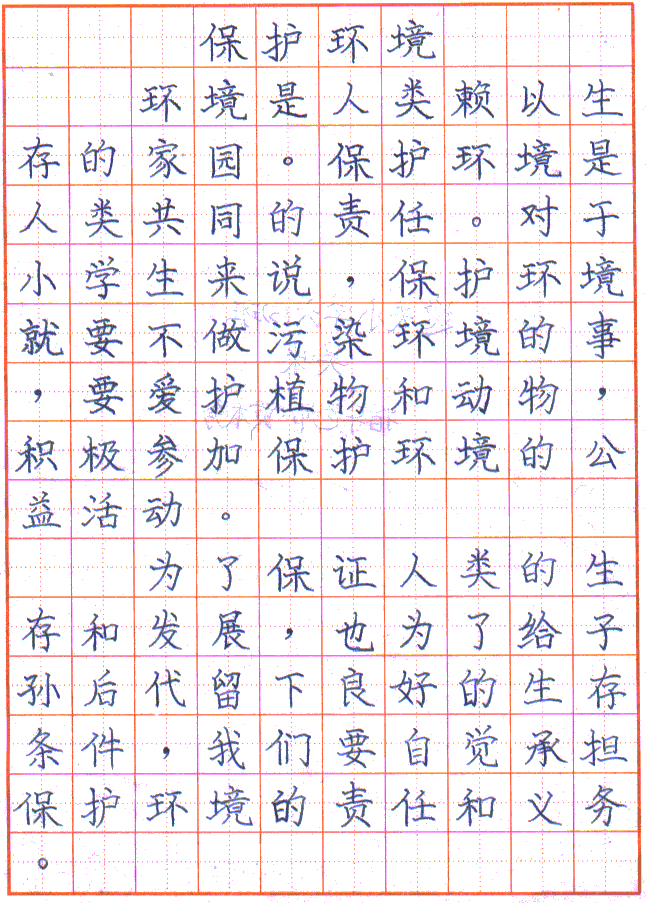 保护环境
环境是人类赖以生
存的家园。保护环境是
人类共同的责任。对于
小学生来说，保护环境
就要不做污染环境的事
，要爱护植物和动物，
积极参加保护环境的公
益活动。
为了保证人类的生
存和发展，也为了给子
孙后代留下良好的生存
条件，我们要自觉承担
保护环境的责任和义务
。